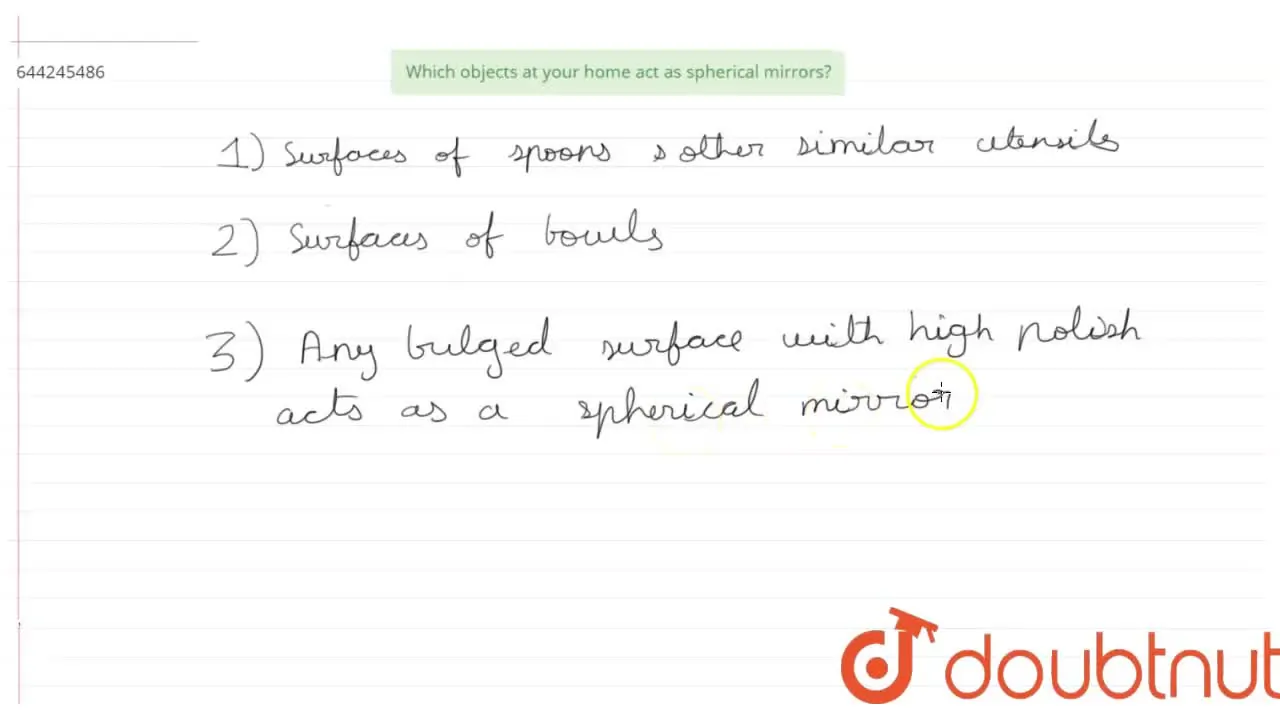 644245486
Which objects at your home act as spherical mirrors?
1) Surfaces of spoons & other similar utensils
2) Surfaces of bowls
3) Any bulged surface with high polish
acts as a spherical mirror
doubtnut